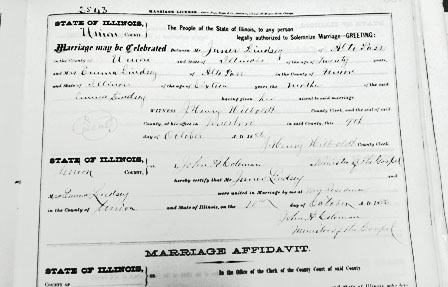 2543
MARRIAGE LICENSE.
STATE OF ILLINOIS,
Union COUNTY.
The People of the State of Illinois, to any person
legally authorized to Solemnize Marriage—GREETING:
Marriage may be Celebrated Between Mr James Lindsey of Alto Pass
in the County of Union and State of Illinois of the age of Twenty years,
and M Emma Lindsey of Alto Pass in the County of Union
and State of Illinois of the age of Sixteen years the mother of the said
Emma Lindsey having given her assent to said marriage.
WITNESS Henry County Clerk, and the seal of said
(Seal) County, at his office in Jonesboro in said County, this 9th
day of October A. D. 18
Henry County Clerk.
STATE OF ILLINOIS,
Union COUNTY
I, John H Coleman Minister of the Gospel
hereby certify that Mr. James Lindsey and
M Emma Lindsey were united in Marriage by me at my residence
in the County of Union and State of Illinois, on the 10th day of October A.D. 18
John H Coleman
Minister of the Gospel
MARRIAGE AFFIDAVIT.
STATE OF ILLINOIS,
COUNTY OF
In the Office of the Clerk of the County Court of said County